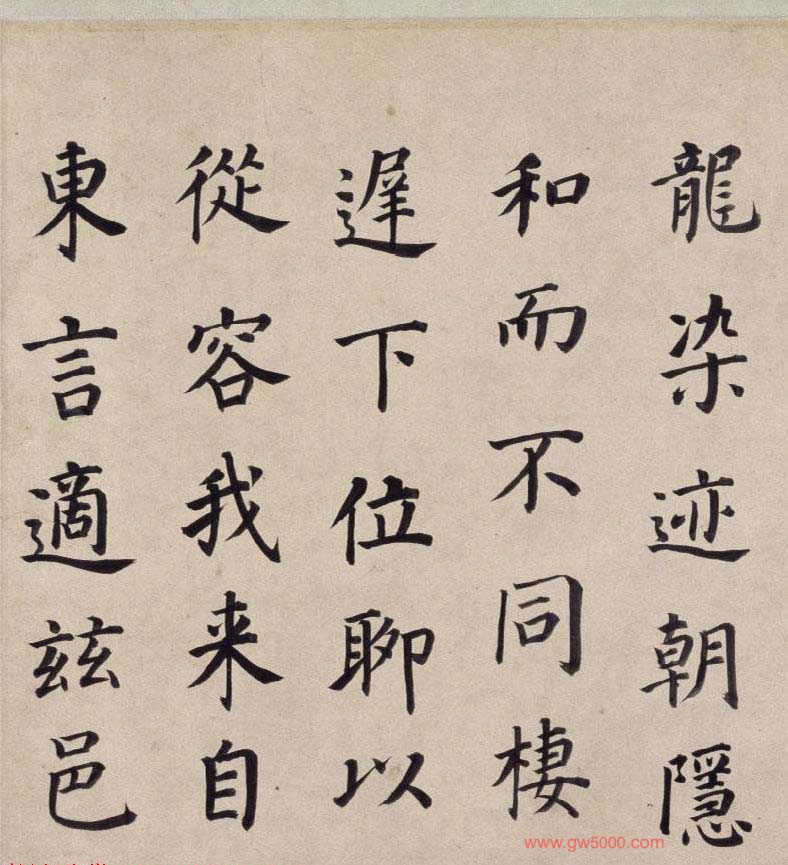 龍染迹朝隱
和而不同棲
遲下位聊以
從容我来自
東言適兹邑
www.gw5000.com